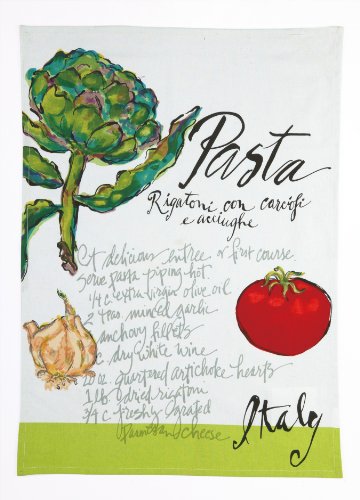 Pasta
Rigatoni con carciofi
e acciughe
A delicious entree or first course
Serve pasta piping hot
1/4 c extra virgin olive oil
2 teas. minced garlic
anchovy fillets
c dry white wine
20 oz. quartered artichoke hearts
1 lb dried rigatoni
3/4 c freshly grated
Parmesan cheese
Italy